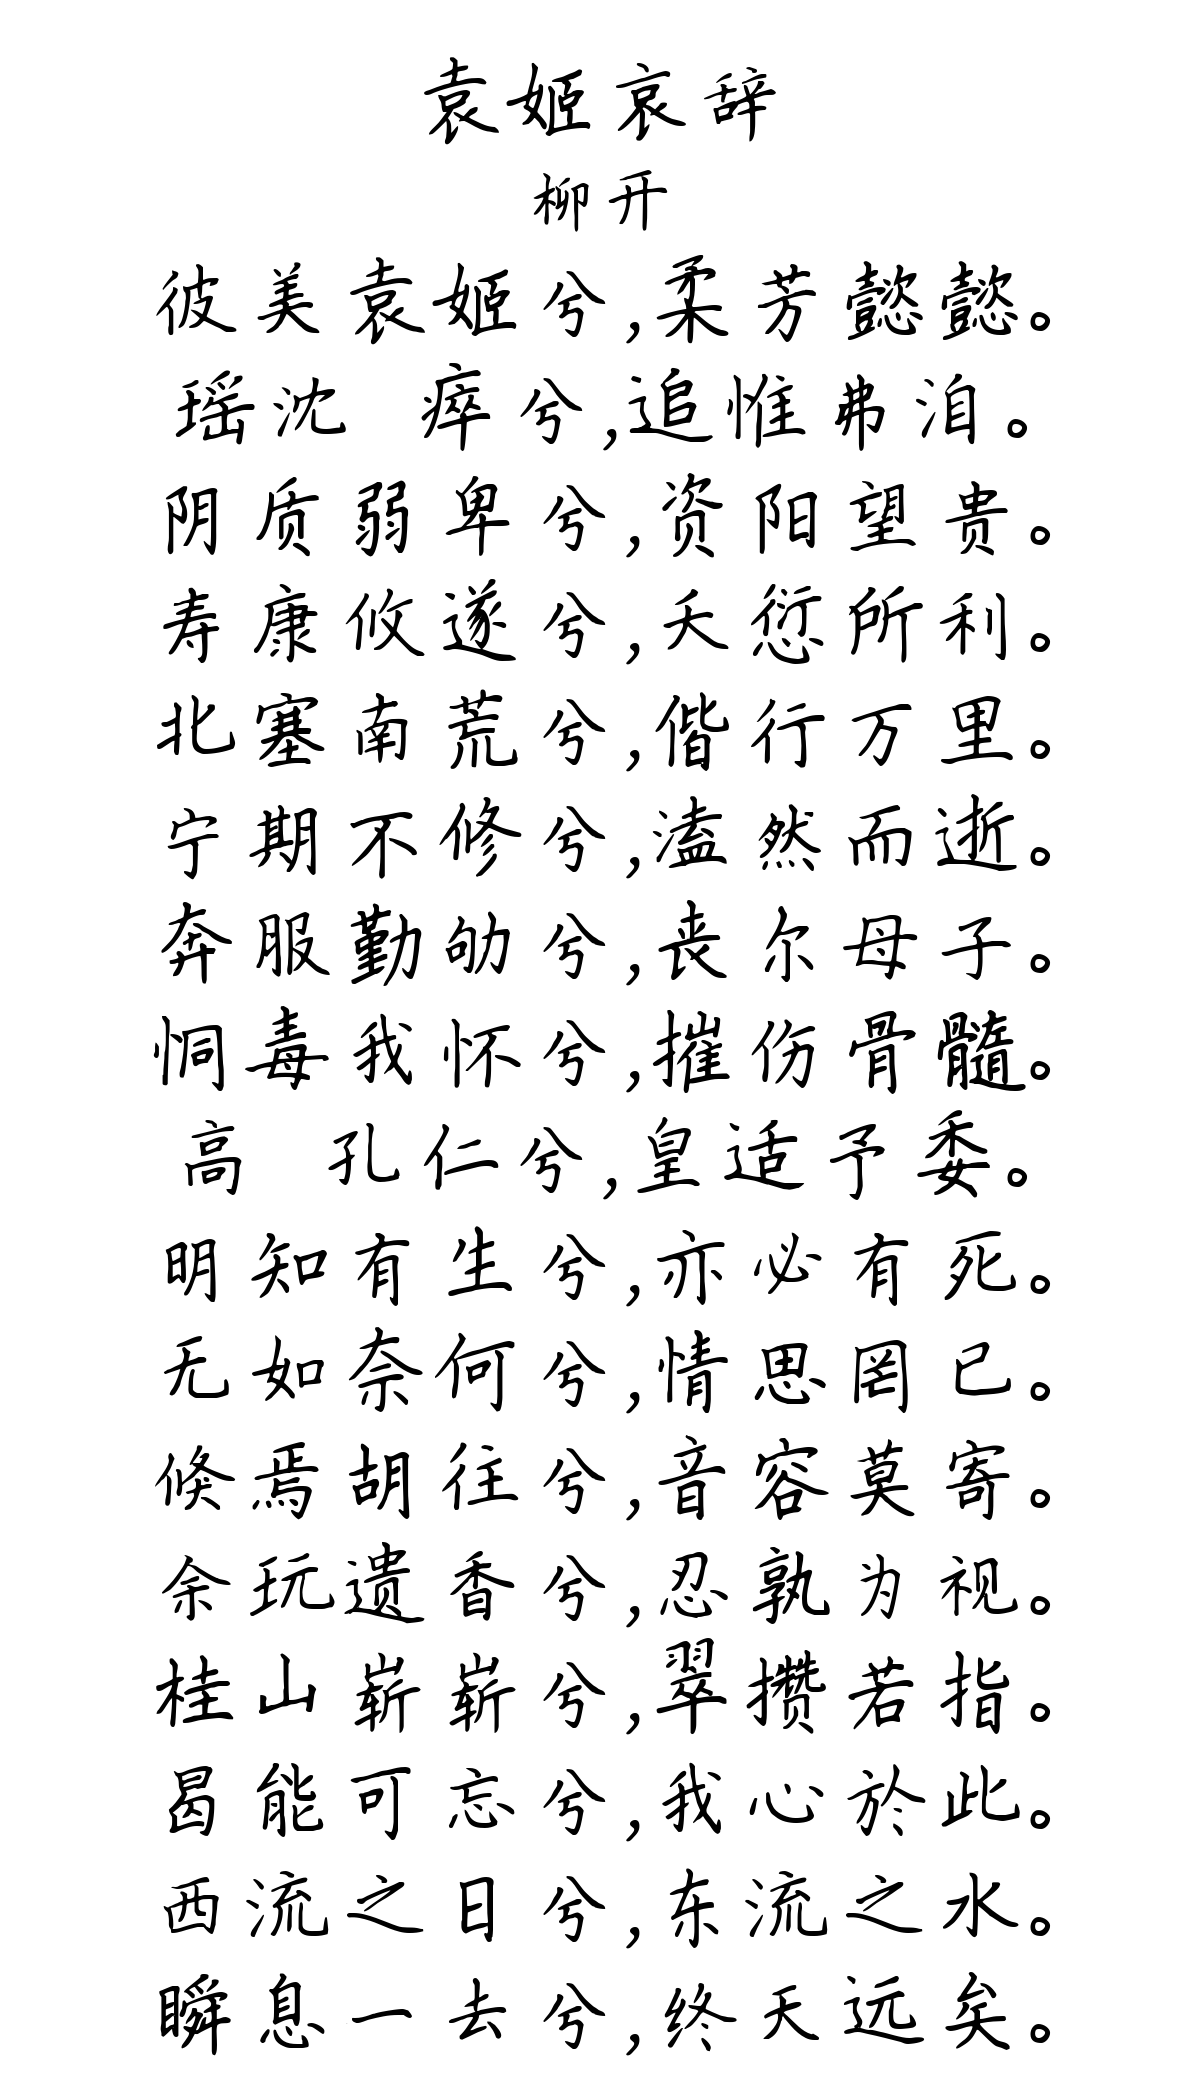 袁姬哀辞
柳开
彼美袁姬兮,柔芳懿懿。
瑶沈 瘁兮,追惟弗洎。
阴质弱卑兮,资阳望贵。
寿康攸遂兮,夭愆所利。
北塞南荒兮,偕行万里。
宁期不修兮,溘然而逝。
奔服勤劬兮,丧尔母子。
恫毒我怀兮,摧伤骨髓。
高 孔仁兮,皇适予委。
明知有生兮,亦必有死。
无如奈何兮,情思罔已。
倏焉胡往兮,音容莫寄。
余玩遗香兮,忍孰为视。
桂山崭崭兮,翠攒若指。
曷能可忘兮,我心於此。
西流之日兮,东流之水。
瞬息一去兮,终天远矣。